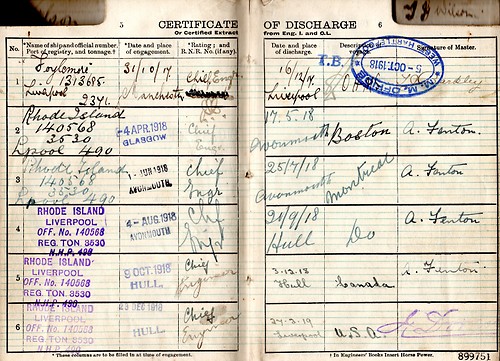 T J Wilson
5
CERTIFICATE
Or Certified Extract
OF DISCHARGE
from Eng. I. and O.L.
6
No.
*Name of ship and official number,
Port of registry, and tonnage.†
*Date and place
of engagement.
*Rating; and
R.N.R. No. (if any).
Date and place
of discharge.
Signature of Master.
1
31/10/17
Manchester
Chief Engr
Liverpool
2371.
16/12/17
Liverpool
T.B.
M.M. OFFICE
WEST HARTLEPOOL
5 OCT 1918
2
Rhode Island
140568
3530
Lpool 490
-4 APR. 1918
GLASGOW
Chief
Engr.
17.5.18
Avonmouth
Boston
A. Fenton.
3
Rhode Island
140568
3530
Lpool 490
1-JUN 1918
AVONMOUTH
Chief
Engr
25/7/18
Avonmouth
Montreal
A. Fenton
4
RHODE ISLAND
LIVERPOOL
OFF. No. 140568
REG. TON. 3530
N.H.P. 490
4-AUG. 1918
AVONMOUTH
Chf
Engr
21/9/18
Hull
Do
A. Fenton
5
RHODE ISLAND
LIVERPOOL
OFF. No. 140568
REG. TON. 3530
N.H.P. 490
9 OCT. 1918
HULL
Chief
Engineer
3.12.18
Hull
Canada
A. Fenton
6
RHODE ISLAND
LIVERPOOL
OFF. No. 140568
REG. TON. 3530
N.H.P. 490
23 DEC 1918
HULL
Chief
Engineer
27.2.19
Liverpool
U.S.A.
* These columns are to be filled in at time of engagement.
† In Engineers' Books Insert Horse Power.
899751